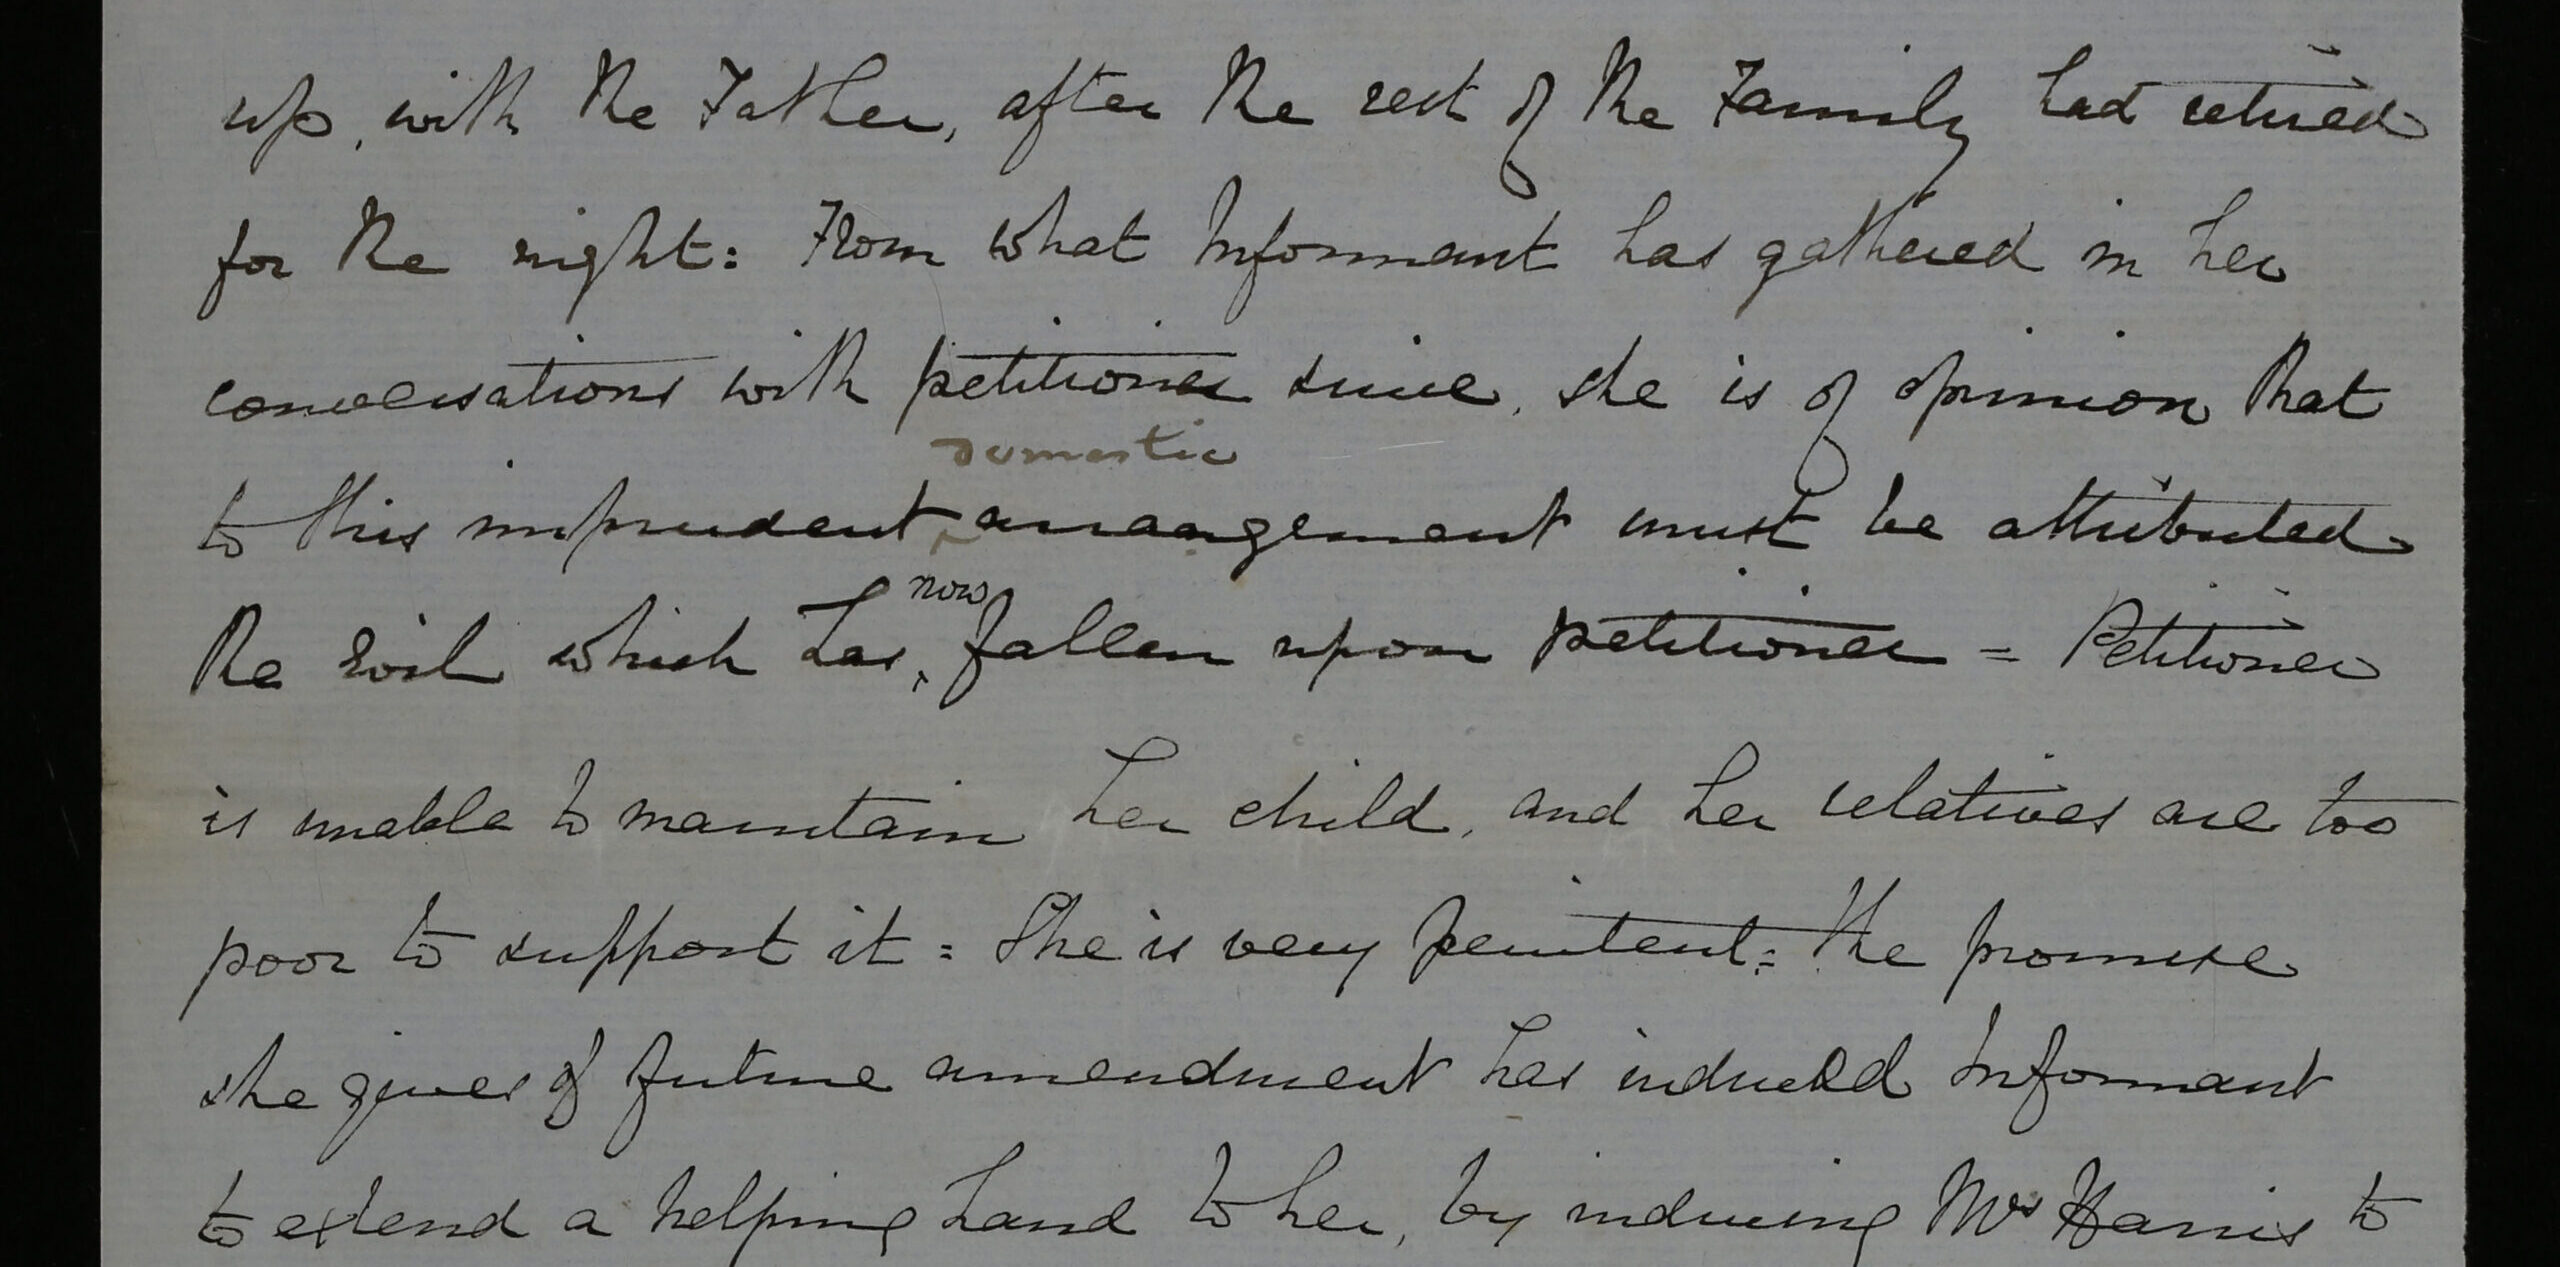 up, with the Father, after the rest of the Family had retired
for the night: From what Informant has gathered in her
conversations with petitioner since, she is of opinion that
domestic
to this imprudent ‸ arrangement must be attributed
now
the Evil which has ‸ fallen upon petitioner = Petitioner
is unable to maintain her child, and her relatives are too
poor to support it = She is very penitent = the promise
she gives of future amendment has induced Informant
to extend a helping hand to her, by inducing Mrs Harris to